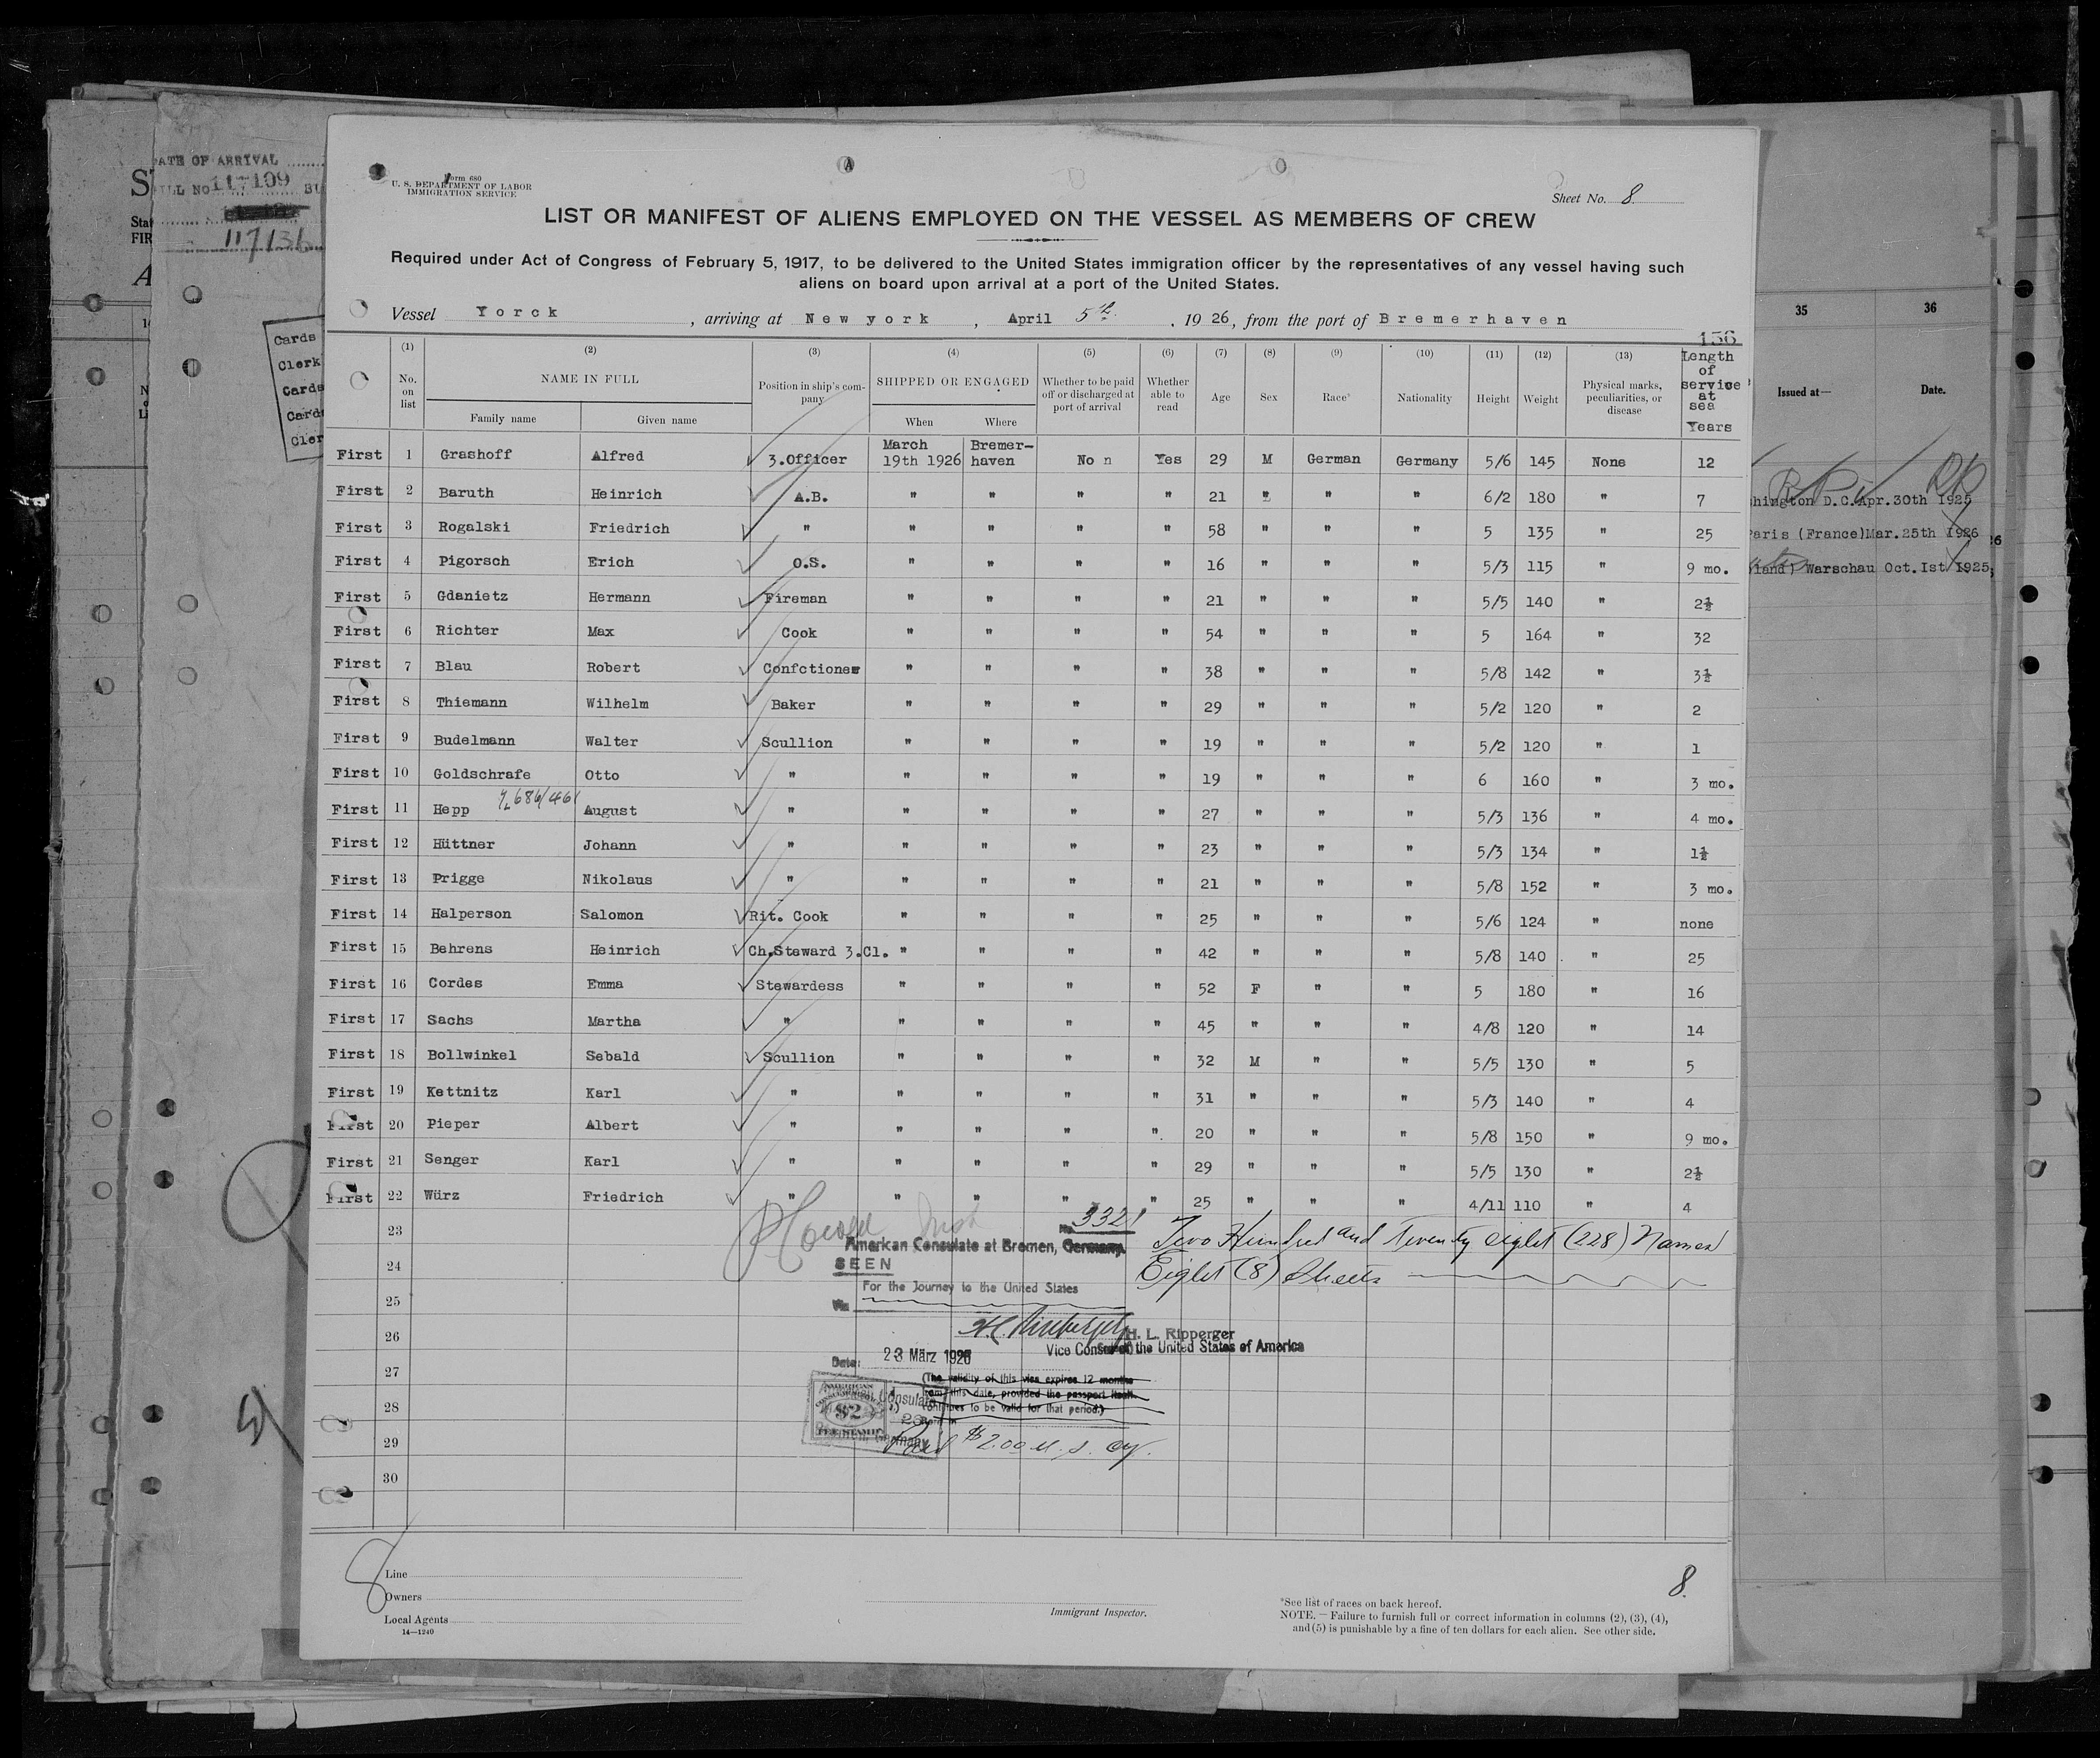 Form 680
U. S. DEPARTMENT OF LABOR
IMMIGRATION SERVICE
Sheet No. 8.
LIST OR MANIFEST OF ALIENS EMPLOYED ON THE VESSEL AS MEMBERS OF CREW
Required under Act of Congress of February 5, 1917, to be delivered to the United States immigration officer by the representatives of any vessel having such
aliens on board upon arrival at a port of the United States.
Vessel Yorck, arriving at New york, April 5th, 1926, from the port of Bremerhaven
136
(1) (2) (3) (4) (5) (6) (7) (8) (9) (10) (11) (12) (13)
No. on list NAME IN FULL Family name Given name Position in ship's company SHIPPED OR ENGAGED When Where Whether to be paid off or discharged at port of arrival Whether able to read Age Sex Race* Nationality Height Weight Physical marks, peculiarities, or disease Length of service at sea Years
First 1 Grashoff Alfred 3.Officer March 19th 1926 Bremer-haven No n Yes 29 M German Germany 5/6 145 None 12
First 2 Baruth Heinrich A.B. " " " " 21 " " " 6/2 180 " 7
First 3 Rogalski Friedrich " " " " " 58 " " " 5 135 " 25
First 4 Pigorsch Erich O.S. " " " " 16 " " " 5/3 115 " 9 mo.
First 5 Gdanietz Hermann Fireman " " " " 21 " " " 5/5 140 " 2½
First 6 Richter Max Cook " " " " 54 " " " 5 164 " 32
First 7 Blau Robert Confctioner " " " " 38 " " " 5/8 142 " 3½
First 8 Thiemann Wilhelm Baker " " " " 29 " " " 5/2 120 " 2
First 9 Budelmann Walter Scullion " " " " 19 " " " 5/2 120 " 1
First 10 Goldschrafe Otto " " " " " 19 " " " 6 160 " 3 mo.
First 11 Hepp August " " " " " 27 " " " 5/3 136 " 4 mo.
First 12 Hüttner Johann " " " " " 23 " " " 5/3 134 " 1½
First 13 Prigge Nikolaus " " " " " 21 " " " 5/8 152 " 3 mo.
First 14 Halperson Salomon Rit. Cook " " " " 25 " " " 5/6 124 " none
First 15 Behrens Heinrich Ch.Steward 3.Cl. " " " " 42 " " " 5/8 140 " 25
First 16 Cordes Emma Stewardess " " " " 52 F " " 5 180 " 16
First 17 Sachs Martha " " " " " 45 " " " 4/8 120 " 14
First 18 Bollwinkel Sebald Scullion " " " " 32 M " " 5/5 130 " 5
First 19 Kettnitz Karl " " " " " 31 " " " 5/3 140 " 4
First 20 Pieper Albert " " " " " 20 " " " 5/8 150 " 9 mo.
First 21 Senger Karl " " " " " 29 " " " 5/5 130 " 2½
First 22 Würz Friedrich " " " " " 25 " " " 4/11 110 " 4
23
24
25
26
27
28
29
30
No. 3321
Two Hundred and Twenty eight (228) Names
Eight (8) Sheets
American Consulate at Bremen, Germany.
SEEN
For the Journey to the United States
Via
H. L. Ripperger
Vice Consul of the United States of America
Date: 23 März 1926
(The validity of this visa expires 12 months
from this date, provided the passport itself
continues to be valid for that period.)
AMERICAN
$2
FEE STAMP
Consulate
Germany
Paid $2.00 U. S. Cy.
8
Line
Owners
Local Agents
14—1240
Immigrant Inspector.
8.
*See list of races on back hereof.
NOTE.—Failure to furnish full or correct information in columns (2), (3), (4),
and (5) is punishable by a fine of ten dollars for each alien. See other side.
DATE OF ARRIVAL
117109
117136
Cards
Clerk
Cards
Cards
Cler
35 36
Issued at— Date.
hington D.C. Apr.30th 1925
Paris (France) Mar.25th 1926
Warschau Oct.1st 1925